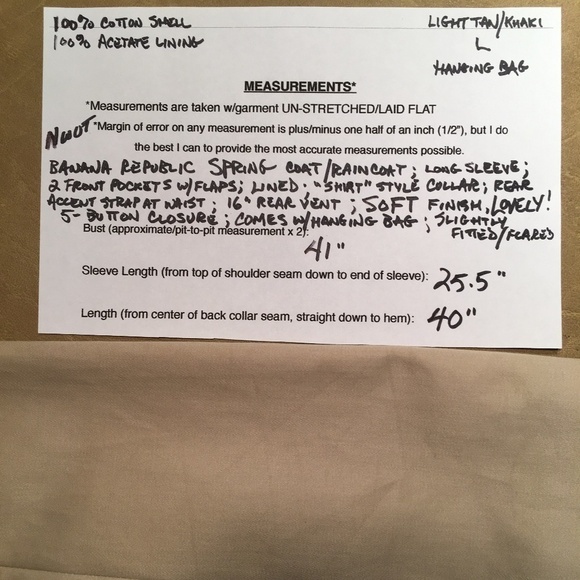 100% COTTON SHELL
100% ACETATE LINING
LIGHT TAN/KHAKI
L
HANGING BAG
MEASUREMENTS*
*Measurements are taken w/garment UN-STRETCHED/LAID FLAT
NWOT *Margin of error on any measurement is plus/minus one half of an inch (1/2"), but I do
the best I can to provide the most accurate measurements possible.
BANANA REPUBLIC SPRING COAT/RAINCOAT; LONG SLEEVE;
2 FRONT POCKETS W/FLAPS; LINED; "SHIRT" STYLE COLLAR; REAR
ACCENT STRAP AT WAIST; 16" REAR VENT; SOFT FINISH, LOVELY!
5-BUTTON CLOSURE; COMES W/HANGING BAG; SLIGHTLY
FITTED/FLARED
Bust (approximate/pit-to-pit measurement x 2):
41"
Sleeve Length (from top of shoulder seam down to end of sleeve): 25.5"
Length (from center of back collar seam, straight down to hem): 40"